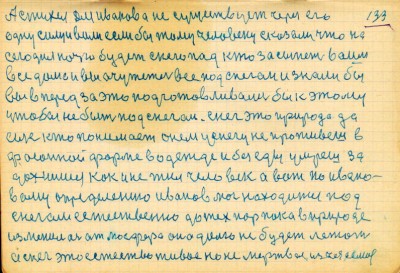 133
А стихия для Иванова не существует чем его
одну силу и воли если бы тому человеку сказали что на
сегодня ночь будет снегопад кто засыпет вами
все до и вы очутетесь все под снегам и знали бы
вы вперед за это подготовливали бы к этому
чтобы не быть под снегам. снег это природа да
еще кто понимает о нем у снегу не проживеш в
форме в одежде и без еды умреш за
как не жил человек а вот по ивано
вому определению иванов мог находится под
снегам естественно до тех пор пока в природе
изменилась атмосфера она долго не будет лежать
а снег это естество живое но не мертвое